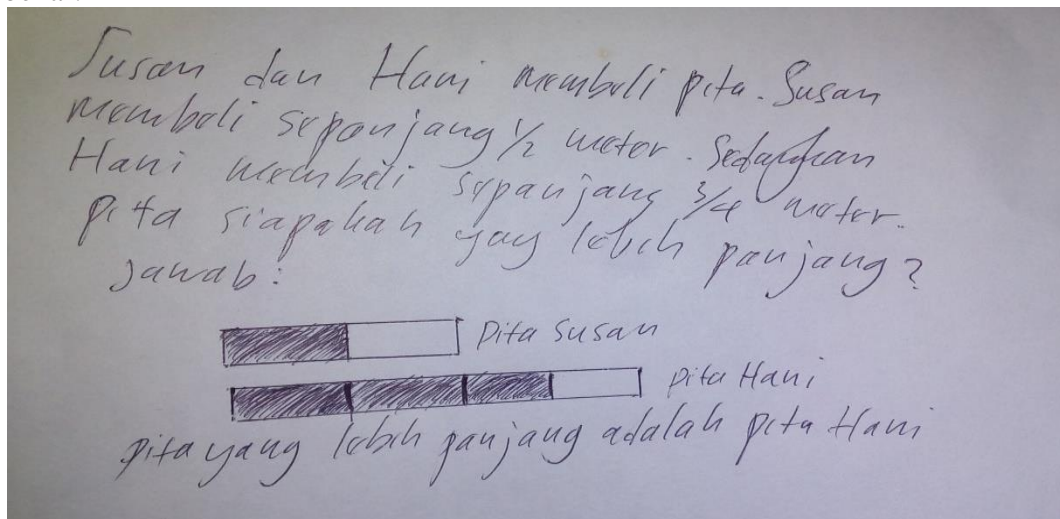 Susan dan Hani membeli pita. Susan
membeli sepanjang 1/2 meter. Sedangkan
Hani membeli sepanjang 3/4 meter.
pita siapakah yag lebih panjang?
Jawab:
pita Susan
pita Hani
pita yang lebih panjang adalah pita Hani